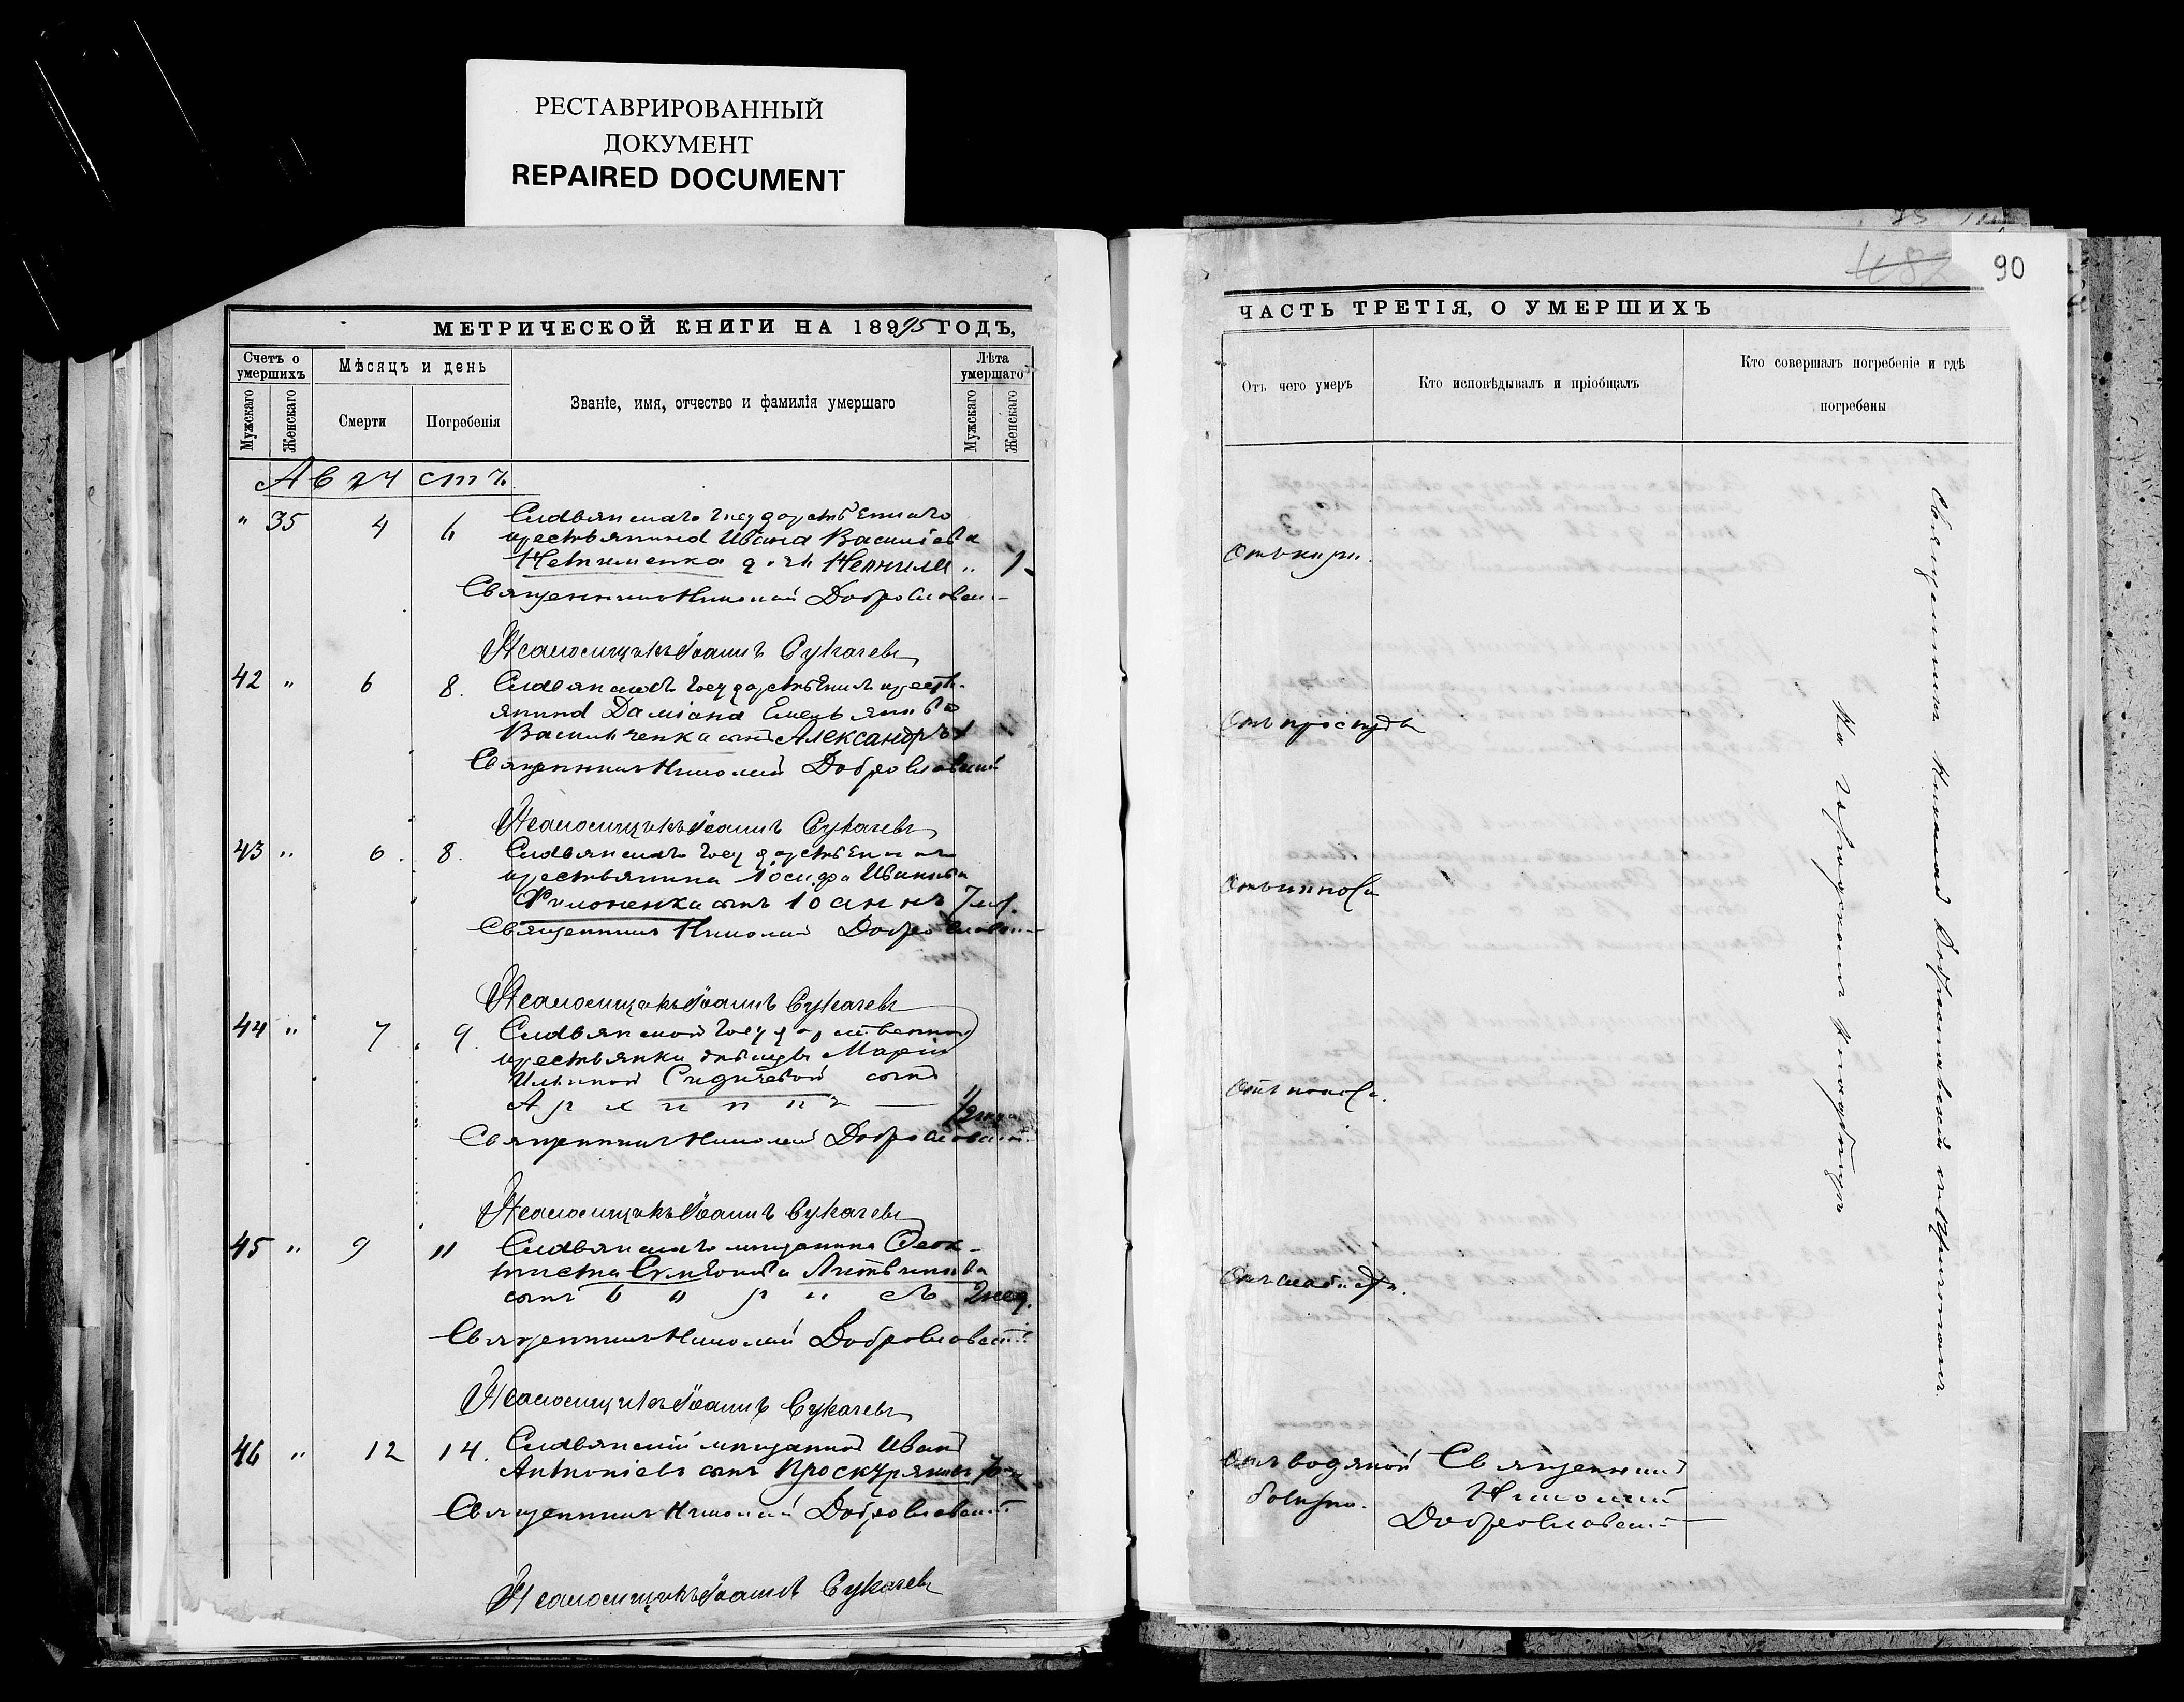 РЕСТАВРИРОВАННЫЙ
ДОКУМЕНТ
REPAIRED DOCUMENT
МЕТРИЧЕСКОЙ КНИГИ НА 18995 ГОДЪ,
Счетъ о умершихъ
Мужскаго
Женскаго
Мѣсяцъ и день
Смерти
Погребенія
Званіе, имя, отчество и фамилія умершаго
Лѣта умершаго
Мужскаго
Женскаго
Августъ
" 35 4 6 Славянскаго государственнаго
крестьянина Ивана Васильева
дочь " 1
Священникъ Николай Доброславскій
Псаломщикъ Іоаннъ Сукачевъ
42 " 6 8. Славянскаго государственнаго крестьянина Даміана Емельянова
Васильченка сынъ Александръ 1
Священникъ Николай Доброславскій
Псаломщикъ Іоаннъ Сукачевъ
43 " 6. 8. Славянскаго государственнаго
крестьянина Іосифа Иванова
Филоненка сынъ Іоаннъ 7 м.
Священникъ Николай Доброславскій
Псаломщикъ Іоаннъ Сукачевъ
44 " 7 9. Славянской государственной
крестьянки дѣвицы Маріи
Ильиной сынъ
Архиппъ 1/2
Священникъ Николай Доброславскій
Псаломщикъ Іоаннъ Сукачевъ
45 " 9 11 Славянскаго мѣщанина Ѳеок-
тиста Литвинова
сынъ 2 нед.
Священникъ Николай Доброславскій
Псаломщикъ Іоаннъ Сукачевъ
46 " 12 14. Славянскій мѣщанинъ Иванъ
Антоніевъ сынъ Проскуряковъ
Священникъ Николай Доброславскій
Псаломщикъ Іоаннъ Сукачевъ
90
ЧАСТЬ ТРЕТІЯ, О УМЕРШИХЪ
Отъ чего умеръ
Кто исповѣдывалъ и пріобщалъ
Кто совершалъ погребеніе и гдѣ
погребены
Отъ кори.
Отъ простуды
Отъ поноса
Отъ поноса.
Отъ слабости.
Отъ водяной
болѣзни.
Священникъ
Николай
Доброславскій
Священникъ Николай Доброславскій съ причтомъ
На городскомъ кладбищѣ